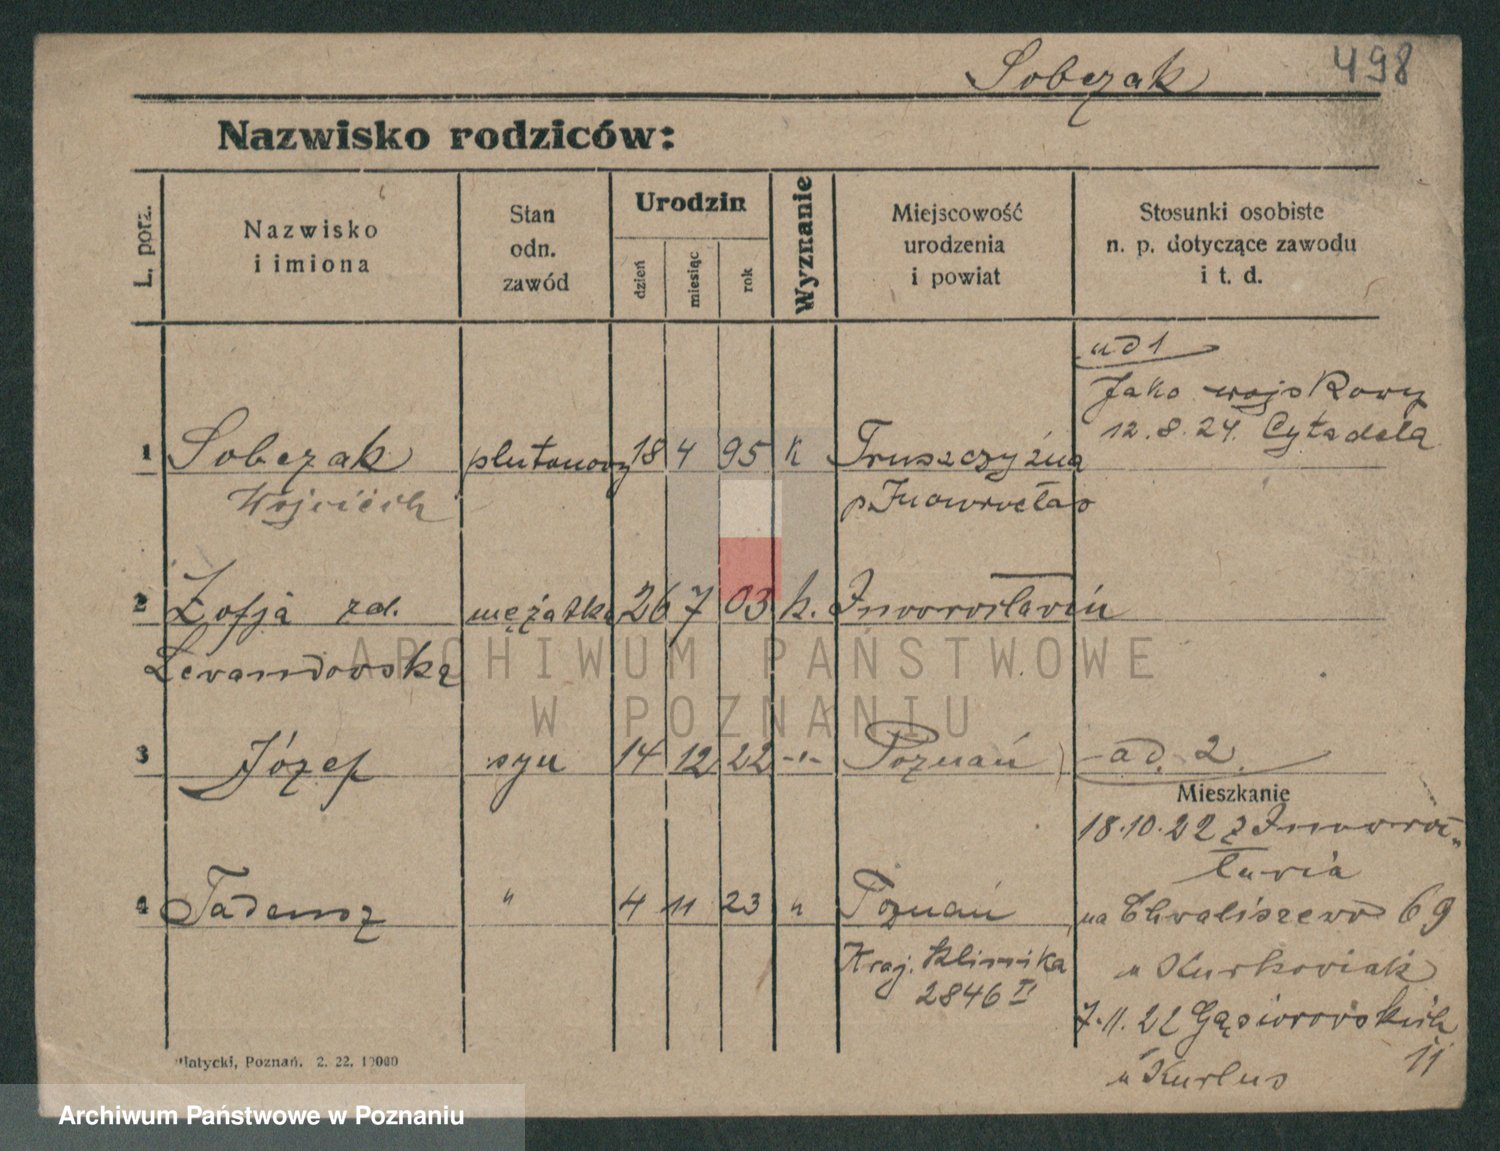 Sobczak 498
Nazwisko rodziców:
L. porz.
Nazwisko
i imiona
Stan
odn.
zawód
Urodzin
dzień
miesiąc
rok
Wyznanie
Miejscowość
urodzenia
i powiat
Stosunki osobiste
n. p. dotyczące zawodu
i t. d.
ad 1
Jako wojskowy
12.8.24. Cytadela
1 Sobczak plutonowy 18 4 95 k Truszczyźna
Wojciech p. Inowrocław
2 Zofja zd. mężatka 26 7 03 k. Inowrocławiu
Lewandowska
3 Józef syn 14 12 22 -"- Poznań ad. 2.
Mieszkanie
18.10.22 z Inowroc-
ławia
4 Tadeusz " 4 11 23 " Poznań na Chwaliszewo 69
Kraj. Klinika u Kurkowiak
2846 II
7.11.22 Gąsiorowskich
11
u Kurlus
Platycki, Poznań. 2. 22. 10000
ARCHIWUM PAŃSTWOWE
W POZNANIU
Archiwum Państwowe w Poznaniu